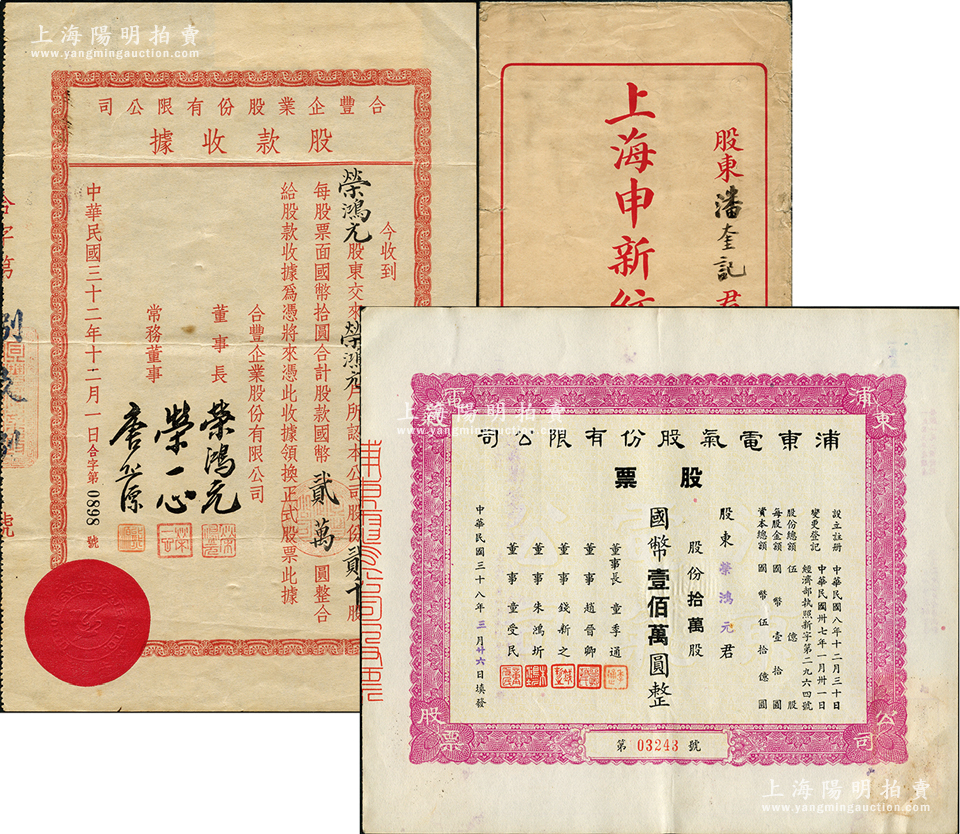 上海陽明拍賣
www.yangmingauction.com
合豐企業股份有限公司
股款收據
今收到
榮鴻元股東交來榮鴻元戶所認本公司股份貳千股
每股票面國幣拾圓合計股款國幣貳萬圓整合
給股款收據為憑將來憑此收據領換正式股票此據
合豐企業股份有限公司
董事長 榮鴻元
榮一心
常務董事
中華民國三十二年十二月一日合字第0898號
合字第
號
股東潘奎記君
上海申新紡
上海陽明拍賣
www.yangmingauction.com
浦東電氣股份有限公司
股票
設立註册 中華民國八年十二月三十日
變更登記 中華民國卅七年一月卅一日
經濟部執照新字第二九六四號
股份總額 伍億股
每股金額 國幣壹拾圓
資本總額 國幣伍拾億圓
股東榮鴻元君
股份拾萬股
國幣壹佰萬圓整
董事長 童季通
董事 趙晉卿
董事 錢新之
董事 朱鴻圻
董事 童受民
中華民國三十八年三月廿六日填發
第 03243 號
浦東
電氣
公司
股票
上海陽明拍賣
www.yangmingauction.com